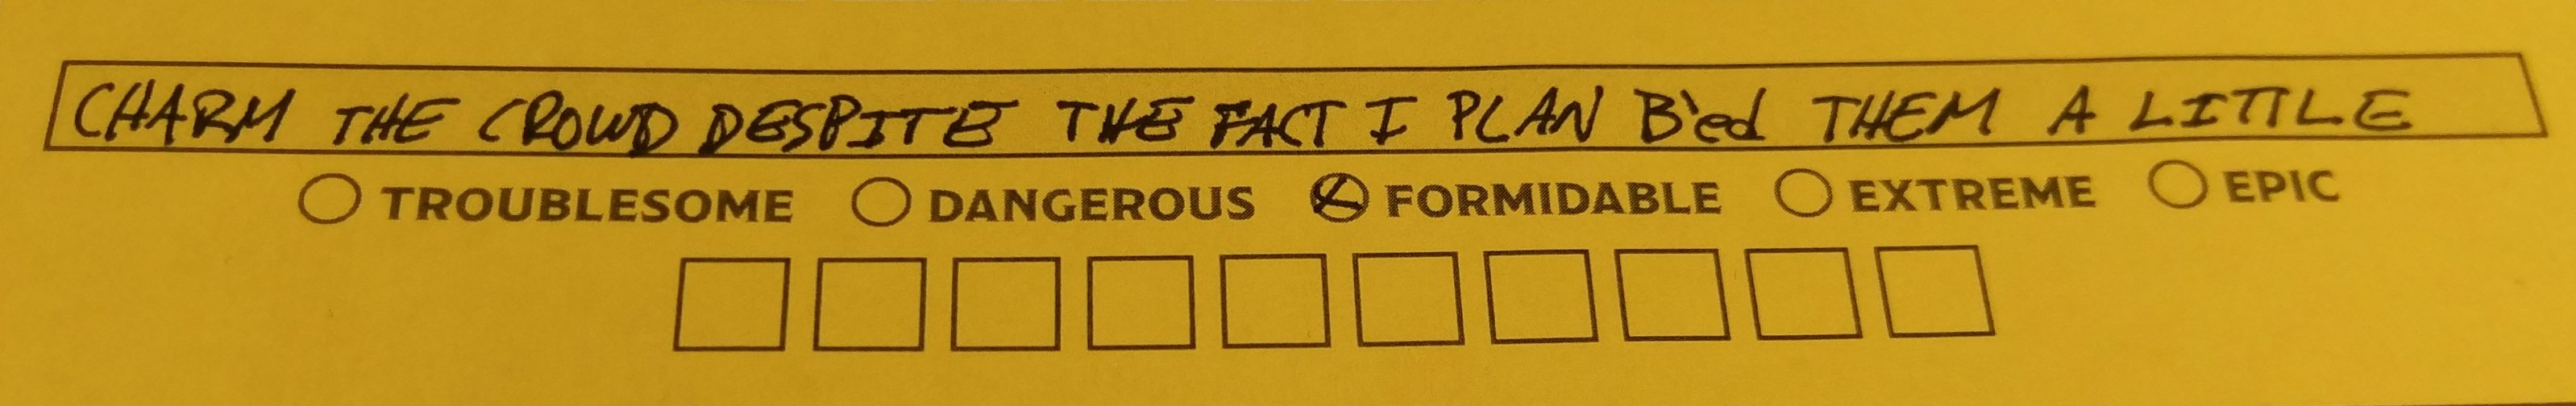 CHARM THE CROWD DESPITE THE FACT I PLAN B'ed THEM A LITTLE
TROUBLESOME DANGEROUS FORMIDABLE EXTREME EPIC